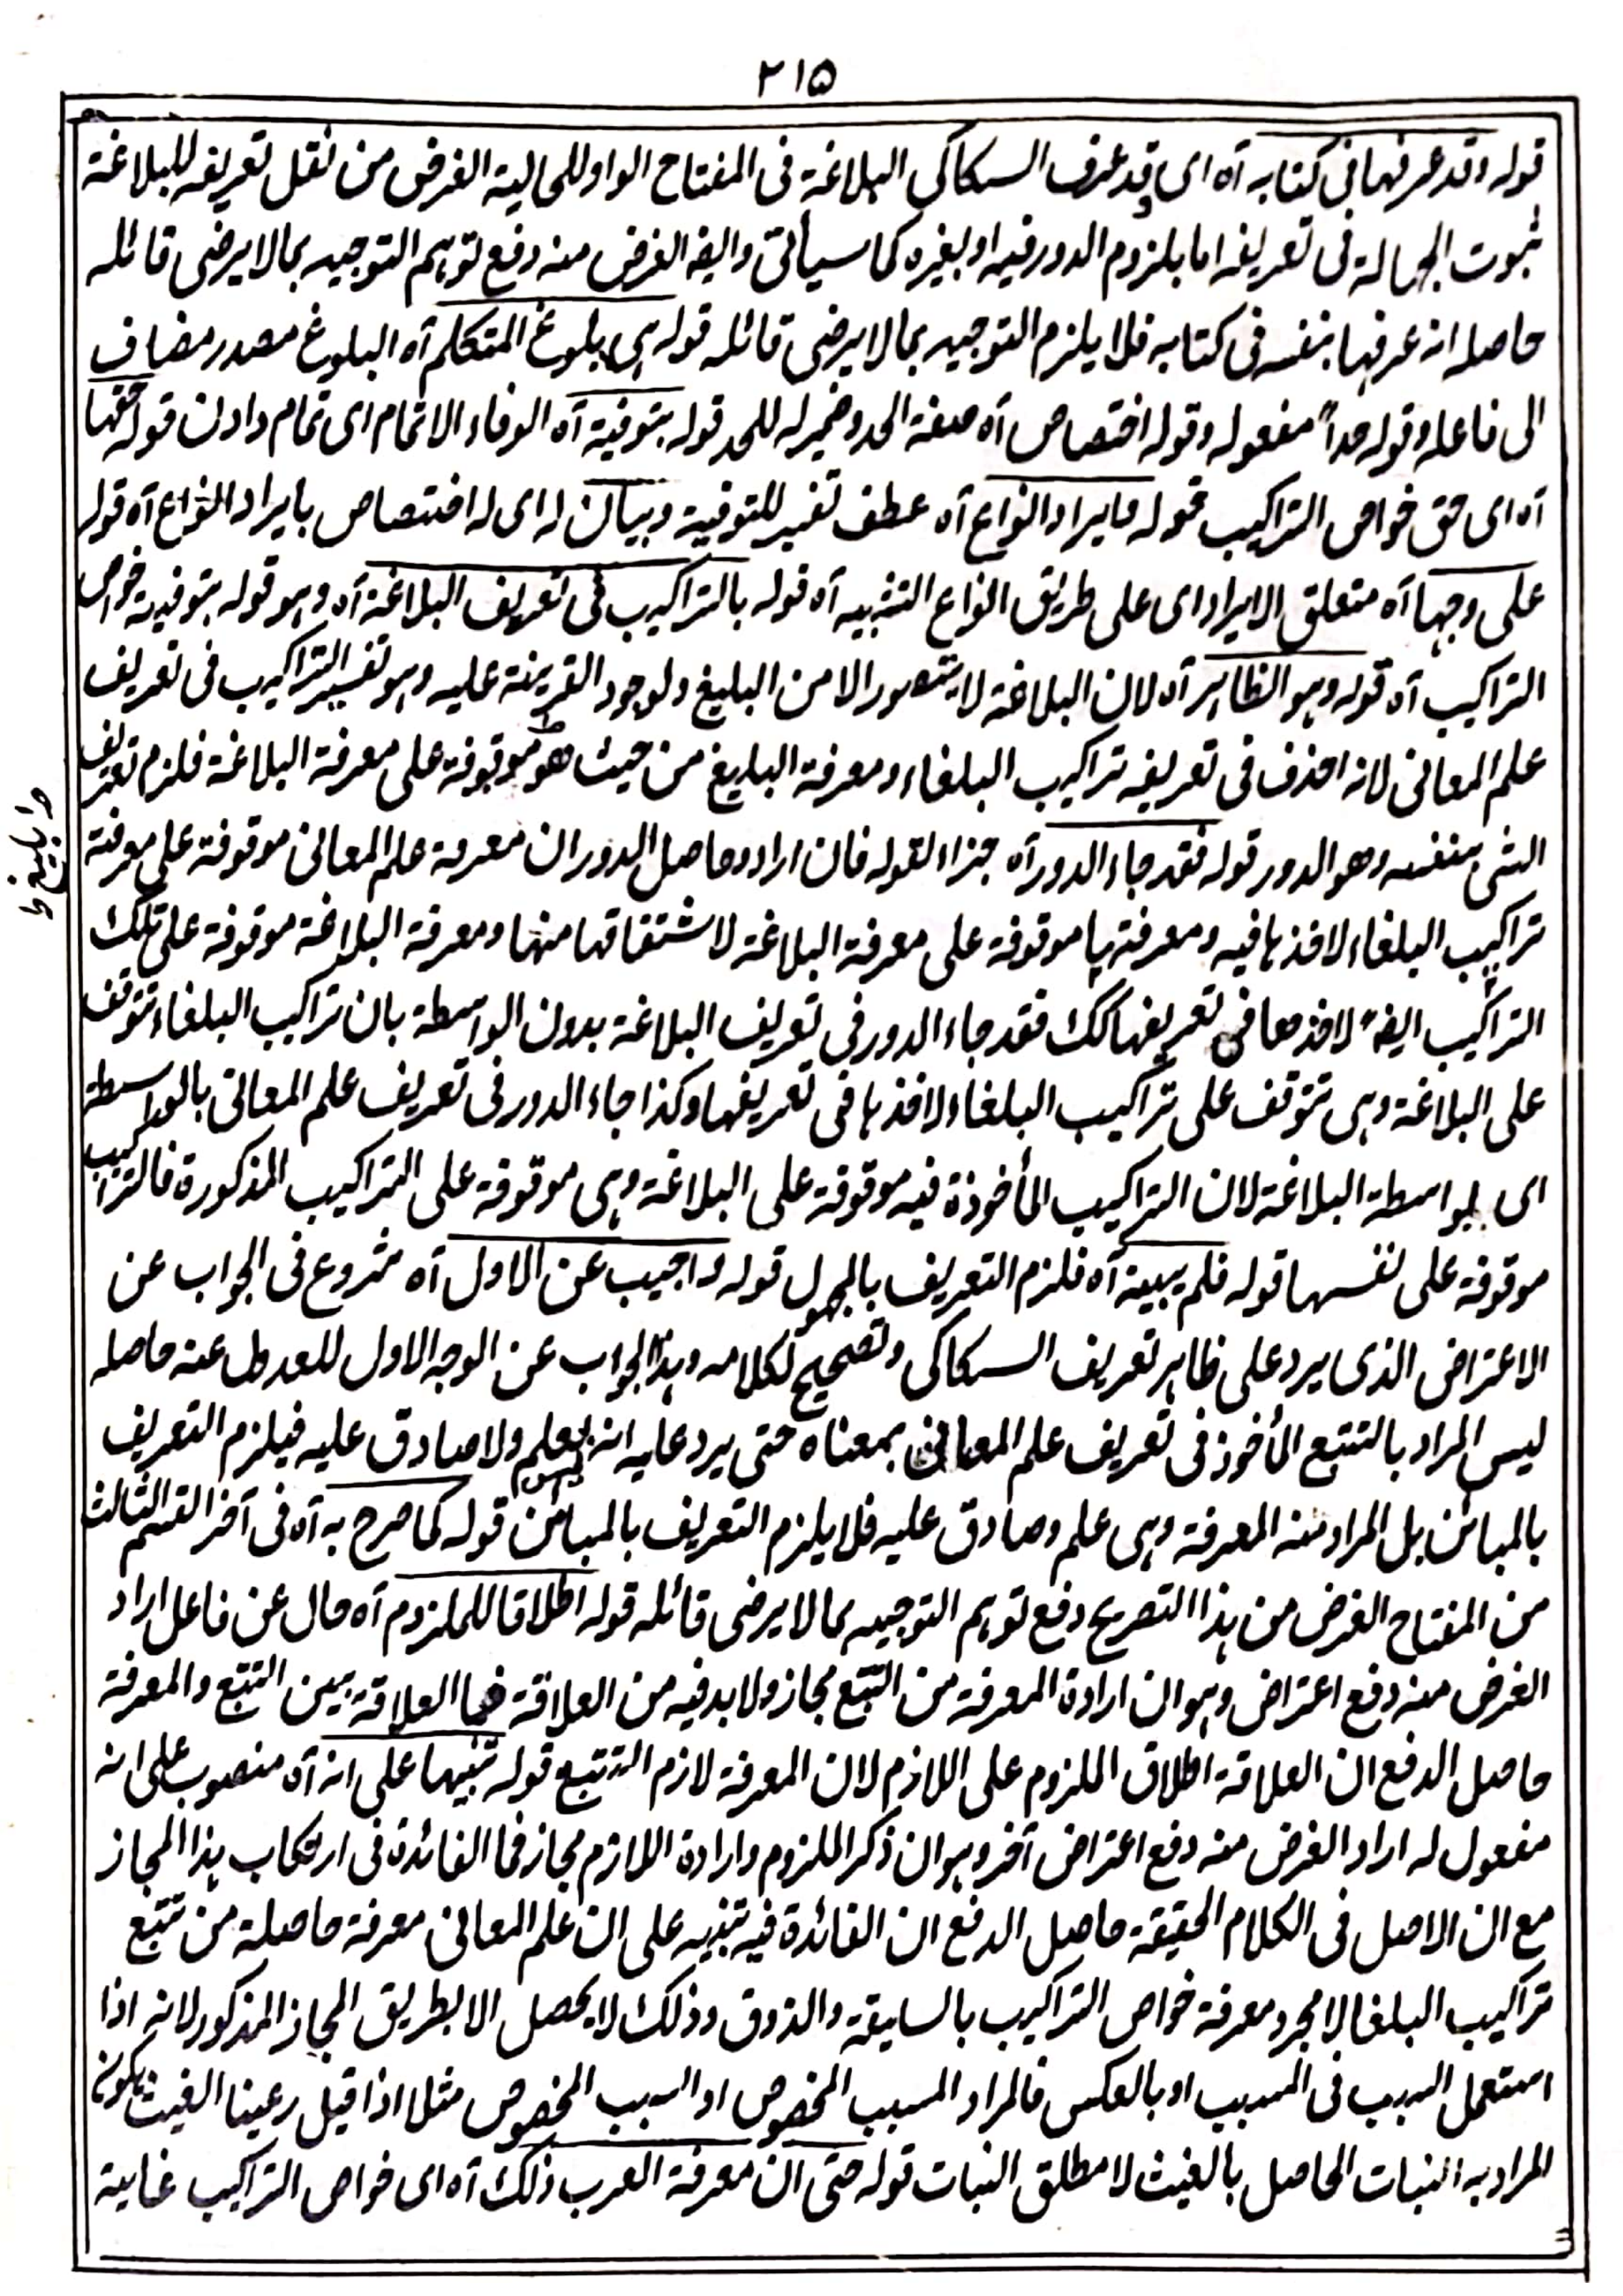 ٢١٥
قوله وقد عرفها فى كتابه آه اى وقد عرف السكاكى البلاغة فى المفتاح الواو للحالية الغرض من نقل تعريفه للبلاغة
ثبوت الجهالة فى تعريفه اما بلزوم الدور فيه او بغيره كما سيأتى وايضا الغرض منه دفع توہم التوجيه بما لا يرضى قائله
حاصله انه عرفہا بنفسه فى كتابه فلا يلزم التوجيه بما لا يرضى قائله قوله ہى بلوغ المتكلم آه البلوغ مصدر مضاف
الى فاعله وقوله حداً مفعوله وقوله اختصاص آه صفة الحد وضمير له للحد قوله بتوفية آه الوفاء الاتمام اى تمام دادن قوله حقها
آه اى حق خواص التراكيب قوله وايراد انواع آه عطف تفسير للتوفية وبيان له اى له اختصاص بايراد انواع آه قوله
على وجہہا آه متعلق الايراد اى على طريق انواع التشبيه آه قوله بالتراكيب فى تعريف البلاغة آه وہو قوله بتوفية خواص
التراكيب آه قوله وہو الظاہر آه لان البلاغة لا يتصور الا من البليغ ولوجود القرينة عليه وہو تفسير التراكيب فى تعريف
علم المعانى لانه اخذ فى تعريفه تراكيب البلغاء ومعرفة البليغ من حيث هو موقوفة على معرفة البلاغة فلزم تعريف
الشئ بنفسه وهو الدور قوله فقد جاء الدور آه جزاء لقوله فان اراد وحاصل الدور ان معرفة علم المعانى موقوفة على معرفة
تراكيب البلغاء لاخذہا فيه ومعرفتہا موقوفة على معرفة البلاغة لاشتقاقها منها ومعرفة البلاغة موقوفة على تلك
التراكيب ايضاً لاخذها فى تعريفها كك فقد جاء الدور فى تعريف البلاغة بدون الواسطة بان تراكيب البلغاء تتوقف
على البلاغة وہى تتوقف على تراكيب البلغاء لاخذہا فى تعريفها وكذا جاء الدور فى تعريف علم المعانى بالواسطة
اى بواسطة البلاغة لان التراكيب المأخوذة فيه موقوفة على البلاغة وہى موقوفة على التراكيب المذكورة فالتراكيب
موقوفة على نفسہا قوله فلم يبينه آه فلزم التعريف بالمجهول قوله واجيب عن الاول آه شروع فى الجواب عن
الاعتراض الذى يرد على ظاہر تعريف السكاكى وتصحيح لكلامه وہذا الجواب عن الوجه الاول للعدول عنه حاصله
ليس المراد بالتتبع المأخوذ فى تعريف علم المعانى بمعناه حتى يرد عليه انه ليس بعلم ولا صادق عليه فيلزم التعريف
بالمبائن بل المراد منه المعرفة وہى علم وصادق عليه فلا يلزم التعريف بالمبائن قوله كما صرح به آه فى آخر القسم الثالث
من المفتاح الغرض من ہذا التصريح دفع توہم التوجيه بما لا يرضى قائله قوله اطلاقا للملزوم آه حال عن فاعل اراد
الغرض منه دفع اعتراض وہو ان ارادة المعرفة من التتبع مجاز ولا بد فيه من العلاقة فما العلاقة بين التتبع والمعرفة
حاصل الدفع ان العلاقة اطلاق الملزوم على اللازم لان المعرفة لازم التتبع قوله تنبيها على انه آه منصوب على انه
مفعول له اراد الغرض منه دفع اعتراض آخر وہو ان ذكر الملزوم وارادة اللازم مجاز فما الفائدة فى ارتكاب ہذا المجاز
مع ان الاصل فى الكلام الحقيقة حاصل الدفع ان الفائدة فيه تنبيه على ان علم المعانى معرفة حاصلة من تتبع
تراكيب البلغا لا مجرد معرفة خواص التراكيب بالسليقة والذوق وذلك لا يحصل الا بطريق المجاز المذكور لانه اذا
استعمل السبب فى المسبب او بالعكس فالمراد المسبب المخصوص او السبب المخصوص مثل اذا قيل رعينا الغيث يكون
المراد به النبات الحاصل بالغيث لا مطلق النبات قوله حتى ان معرفة العرب ذلك آه اى خواص التراكيب غاية